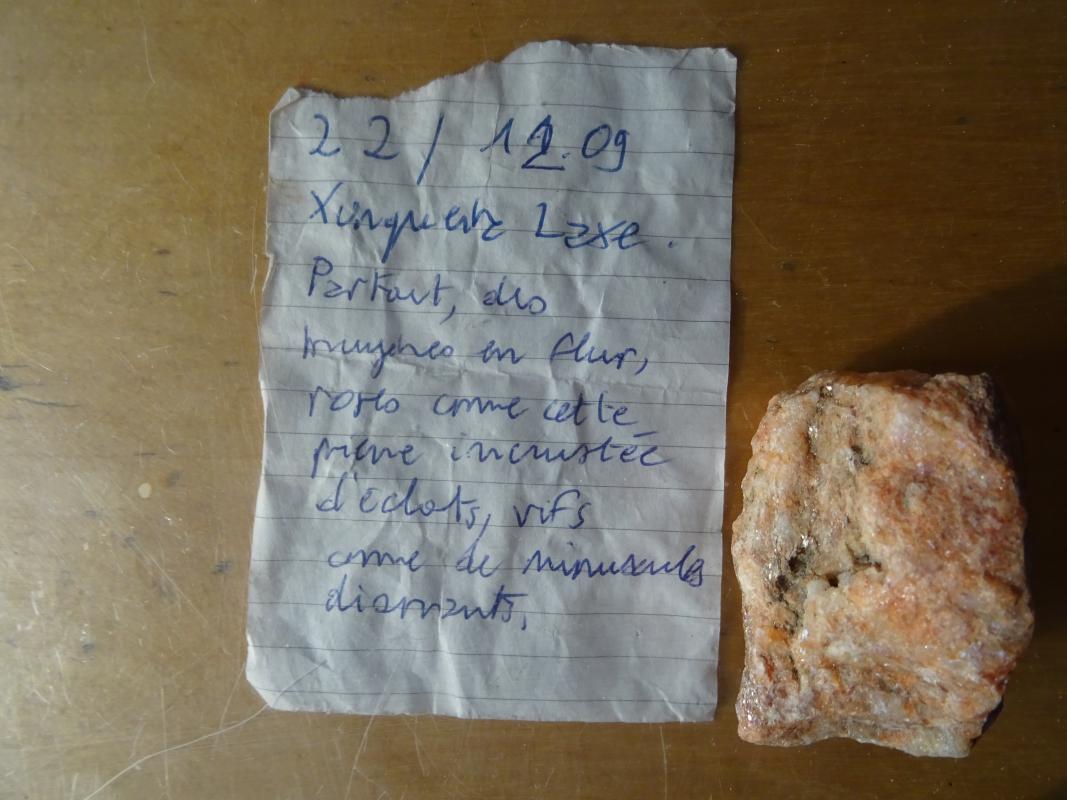 22/12.09
Xunqueira Laxe.
Partout, des
bruyères en fleur,
roses comme cette
pierre incrustée
d'éclats, vifs
comme de minuscules
diamants.